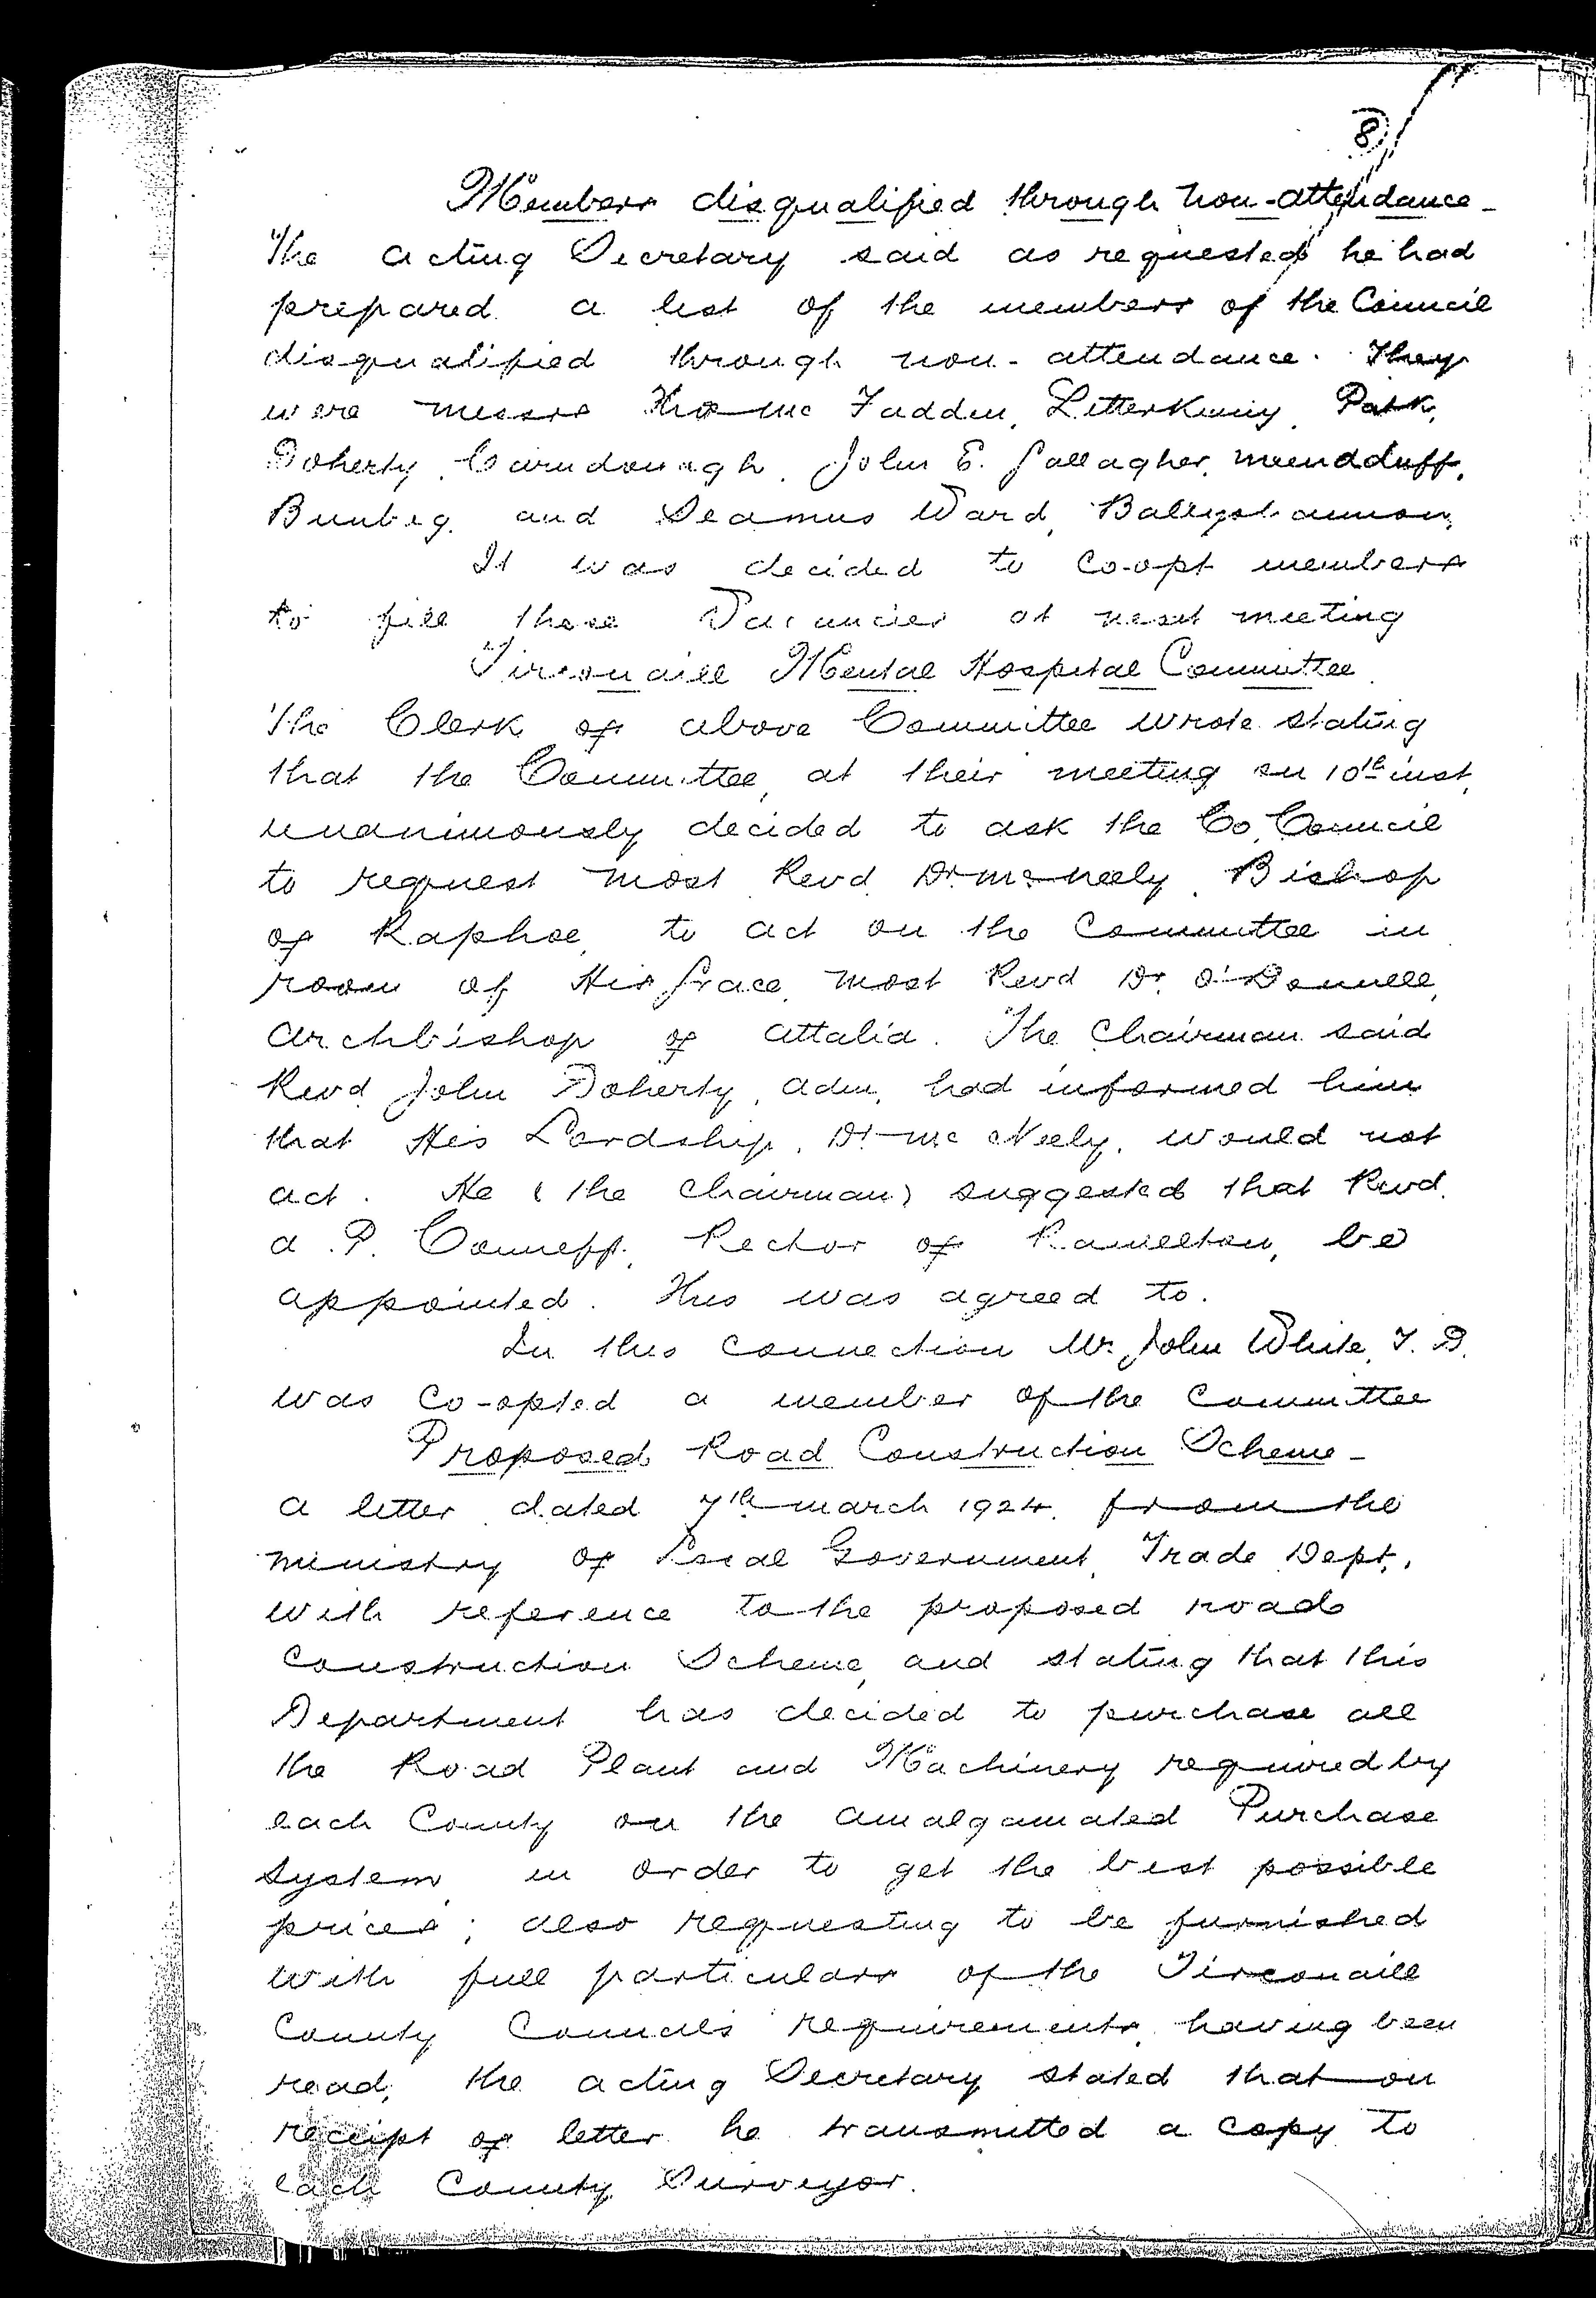 8
Members disqualified through non-attendance -
The acting Secretary said as requested he had
prepared a list of the members of the Council
disqualified through non-attendance. They
were Messrs Thos Mc Fadden, Letterkenny, Patk.
Doherty, Carndonagh, John E. Gallagher, Meendduff,
Bunbeg, and Seamus Ward, Ballyshannon,
It was decided to co-opt members
to fill these Vacancies at next meeting
Tirconaill Mental Hospital Committee
The Clerk of above Committee wrote stating
that the Committee, at their meeting on 10th inst,
unanimously decided to ask the Co. Council
to request Most Revd. Dr. McNeely, Bishop
of Raphoe, to act on the Committee in
room of His Grace, Most Revd Dr. O'Donnell,
Archbishop of Attalia. The Chairman said
Revd. John Doherty, Adm, had informed him
that His Lordship, Dr. Mc Neely, would not
act. He (the Chairman) suggested that Revd.
A. P. Conneff, Rector of Ramelton, be
appointed. This was agreed to.
In this connection Mr. John White, T. D.
was co-opted a member of the Committee
Proposed Road Construction Scheme -
A letter dated 7th March 1924, from the
Ministry of Local Government, Trade Dept.,
with reference to the proposed road
Construction Scheme, and stating that this
Department has decided to purchase all
the Road Plant and Machinery required by
each County on the Amalgamated Purchase
System, in order to get the best possible
prices; also requesting to be furnished
with full particulars of the Tirconaill
County Council's requirements, having been
read, the acting Secretary stated that on
receipt of letter he transmitted a copy to
each County Surveyor.